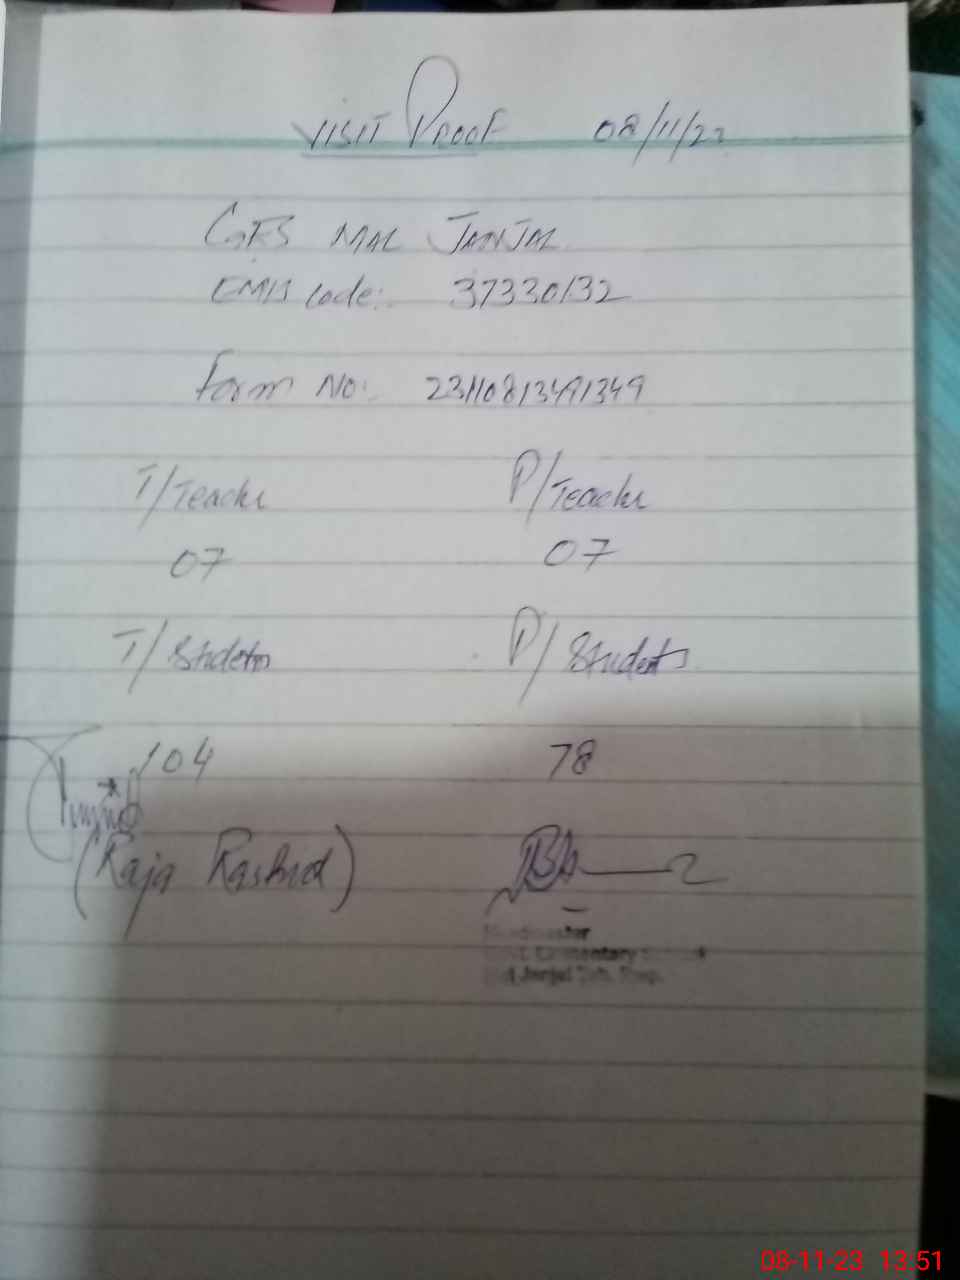 VISIT PROOF 08/11/23
GES MAL JANJAL
EMIS Code: 37330132
Form NO: 23110813491349
T/Teacher P/Teacher
07 07
T/Students P/Students
104 78
(Raja Rashid)
Headmaster
Govt. Elementary School
Mal Janjal Teh.
08-11-23 13:51